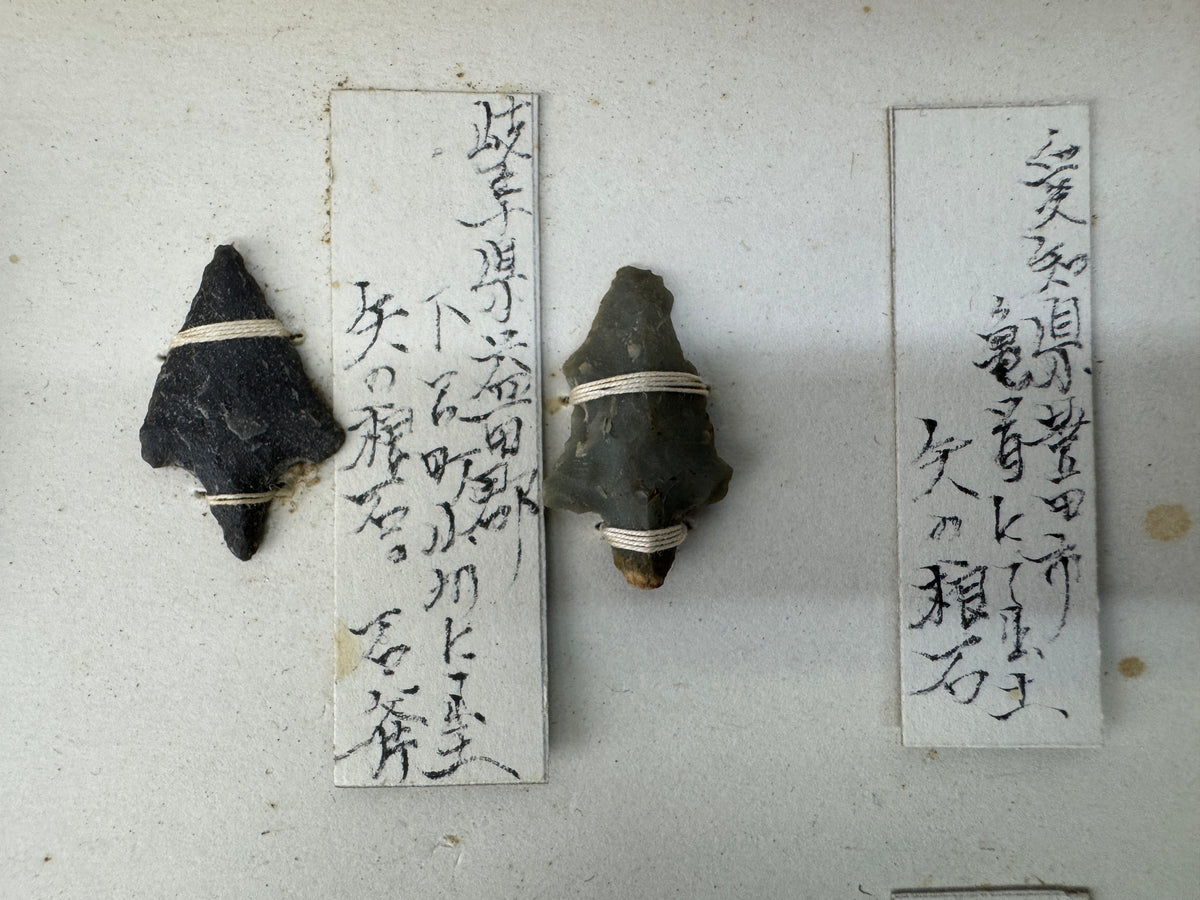 愛知県豊田市
亀首にて出土
矢の根石
岐阜県益田郡
下呂町小川にて出土
矢の根石。石斧